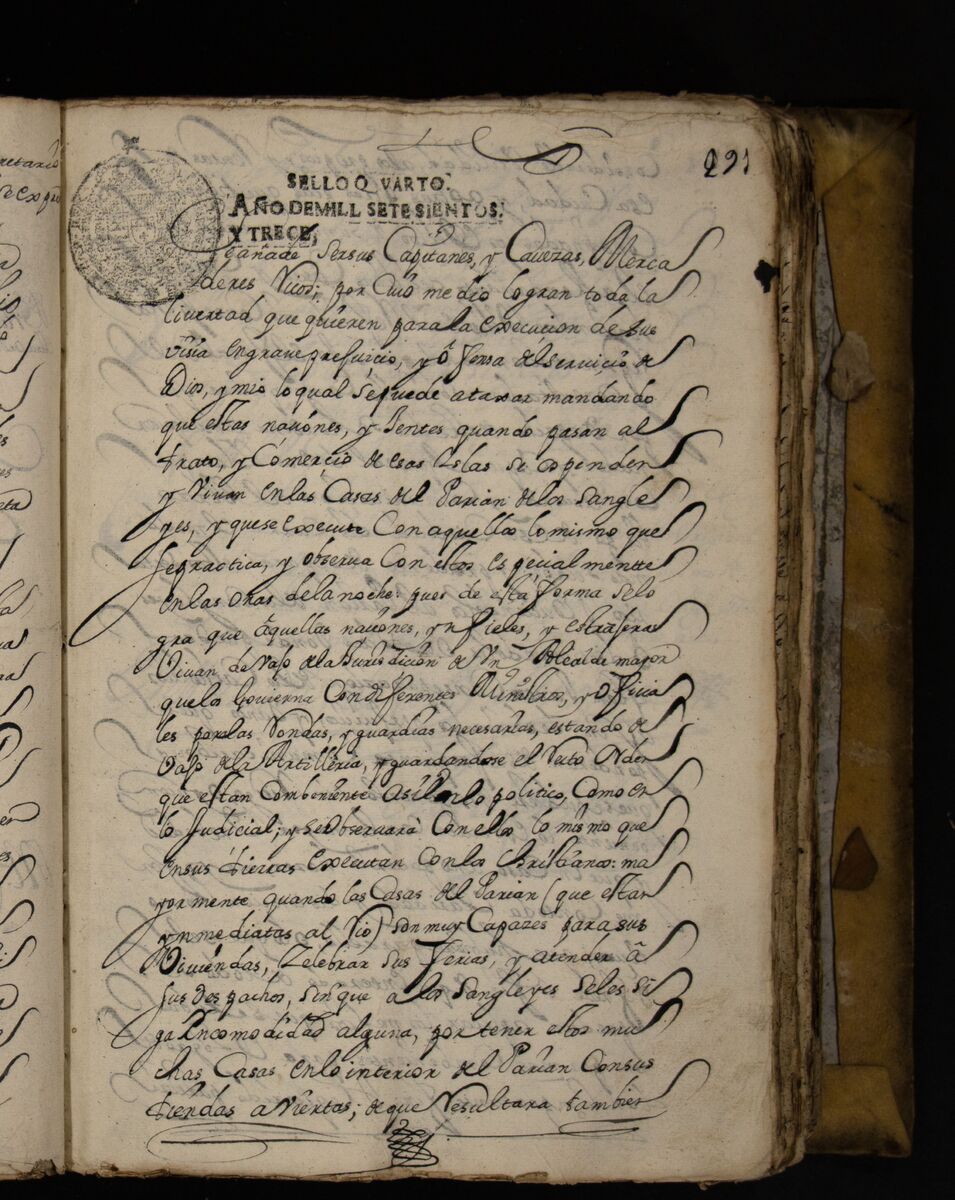 291
SELLO QVARTO.
AÑO DE MILL SETE SIENTOS.
Y TRECE,
ganade sersus Capitanes, y Cavezas, Merca
deres Vicos; por Cuio medio logran toda la
livertad que quieren para la execucion de sus
en grave prejuicio, y ofensa del servicio de
Dios, y mio lo qual sepuede ataxar mandando
que estas naciones, y Jentes quando pasan al
trato, y Comercio de esas Islas se
y Vivan en las Casas del Parian de los Sangle
yes, y que se execute Con aquellos lo mismo que
se practica, y observa Con estos especialmentte
en las oras de la noche: pues de esta forma selo
gra que aquellas naciones, ynfieles, y estrajeras
Vivan de vajo de la Jurisdicion de Un Alcalde mayor
que los Govierna Con diferentes Ministros, y ofizia
les para las Rondas, y guardias necesarias, estando de
vajo de la Artilleria, y guardandose el Recto orden
que es tan Combeniente asi en lo politico, Como en
lo Judicial; y se observara Con ellos lo mismo que
en sus tierras executan Con los Christianos: ma
yor mente quando las Casas del Parian (que estan
ynmediatas al Rio) son muy Capazes para sus
Viviendas, Zelebrar sus ferias, y atender a
sus despachos, sin que a los Sangleyes seles si
ga Incomodidad alguna, por tener estos mu
chas Casas en lo interior del Parian Consus
tiendas aviertas; de que Resultara tambien